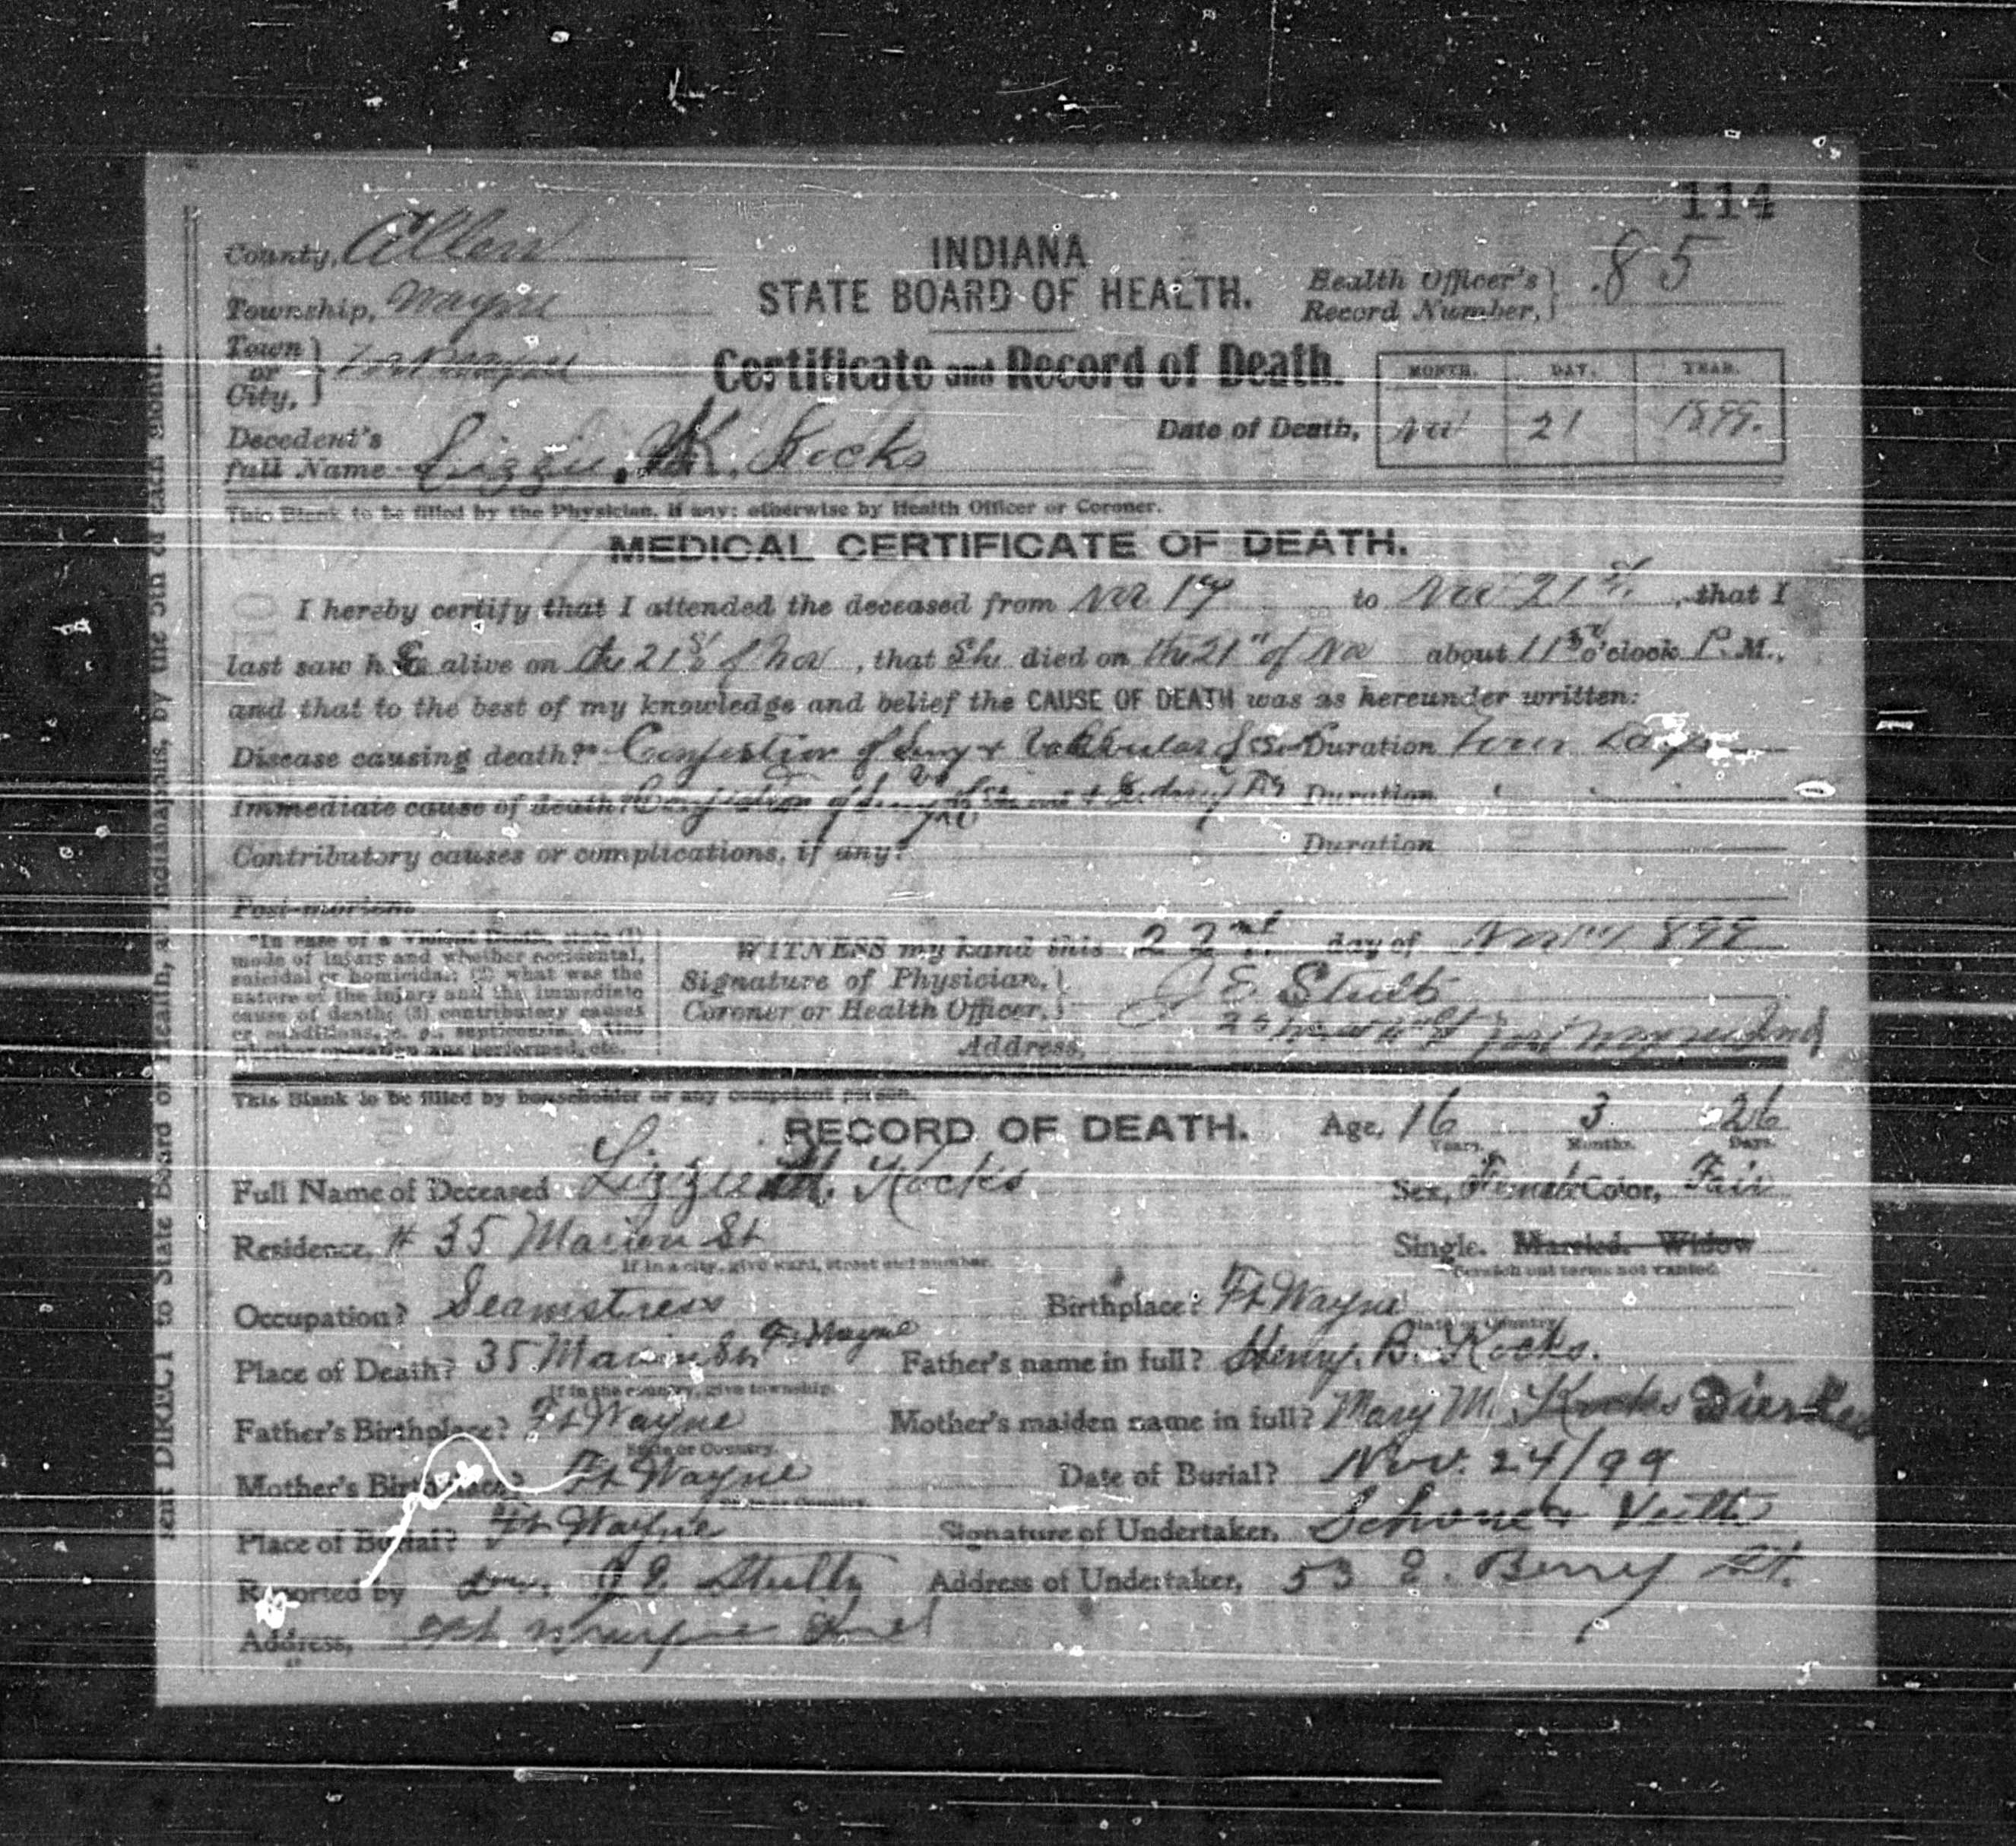 114
County, Allen
INDIANA
STATE BOARD OF HEALTH.
Health Officer's Record Number, 85
Township, Wayne
Town or City, Fort Wayne
Certificate and Record of Death.
MONTH. DAY. YEAR.
Date of Death, Nov 21 1899.
Decedent's full Name Lizzie. M. Kocks
This Blank to be filled by the Physician, if any; otherwise by Health Officer or Coroner.
MEDICAL CERTIFICATE OF DEATH.
I hereby certify that I attended the deceased from Nov 17 to Nov 21st, that I
last saw her alive on the 21st of Nov, that She died on the 21st of Nov about 11 o'clock P. M.,
and that to the best of my knowledge and belief the CAUSE OF DEATH was as hereunder written:
Disease causing death?* Congestion of Lung & Valvular Duration Four Days
Immediate cause of death? Congestion of Lung Duration
Contributory causes or complications, if any? Duration
Post-mortem
*In case of a Violent Death, state (1)
mode of injury and whether accidental,
suicidal or homicidal; (2) what was the
nature of the injury and the immediate
cause of death; (3) contributory causes
or conditions, e. g. septicemia. Also
whether operation was performed, etc.
WITNESS my hand this 22nd day of Nov 1899
Signature of Physician, Coroner or Health Officer, J E Stults
Address, Fort Wayne Ind
This Blank to be filled by householder or any competent person.
RECORD OF DEATH. Age, 16 Years, 3 Months, 26 Days.
Full Name of Deceased Lizzie M. Kocks Sex, Female Color, Fair
Residence, # 35 Marion St Single. Married. Widow
If in a city, give ward, street and number. Scratch out terms not wanted.
Occupation? Seamstress Birthplace? Ft Wayne
State or Country.
Place of Death? 35 Marion St Ft Wayne Father's name in full? Henry. B. Kocks.
If in the country, give township.
Father's Birthplace? Ft Wayne Mother's maiden name in full? Mary M. Kocks
State or Country.
Mother's Birthplace? Ft Wayne Date of Burial? Nov. 24/99
State or Country.
Place of Burial? Ft Wayne Signature of Undertaker, Schone & Veith
Reported by Dr. J E Stults Address of Undertaker, 53 E. Berry St.
Address, Fort Wayne Ind
ent DIRECT to State Board of Health, at Indianapolis, by the 5th of each month.